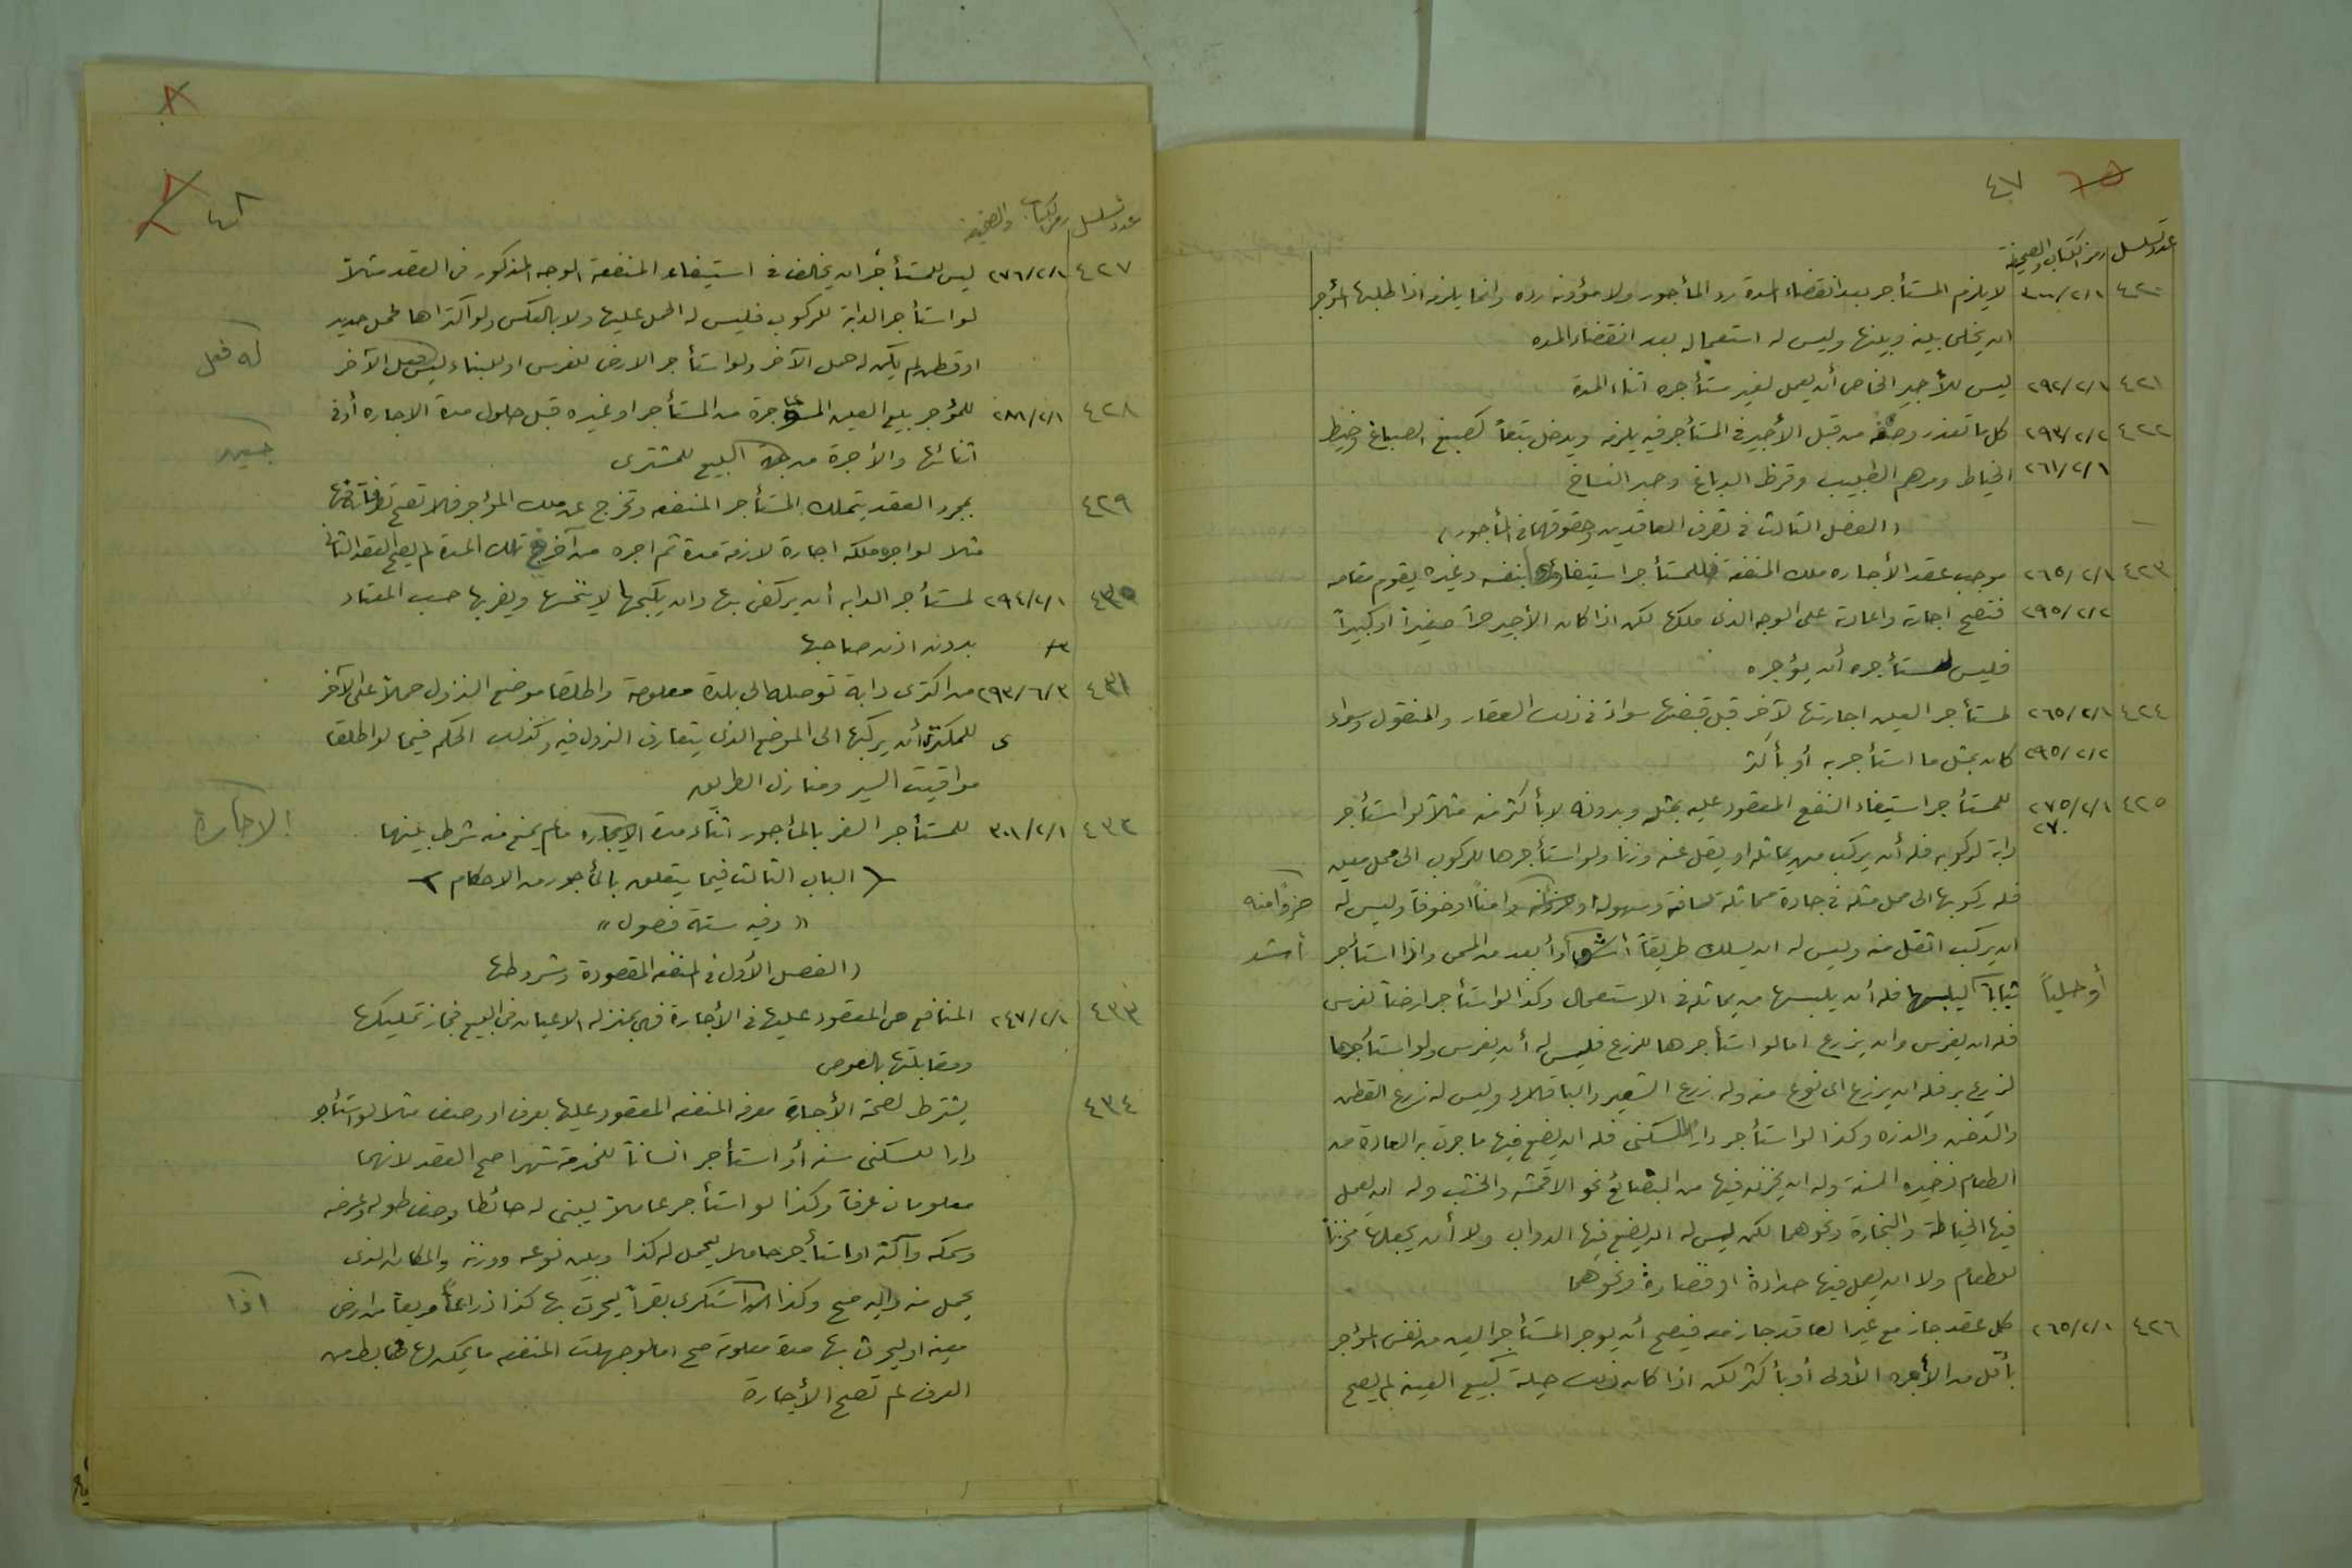 ٤٧
عدد تسلسل رمز الكتاب والصحيفة
٤٢٠ ٣٠٠/٢/١ لا يلزم المستأجر بعد انقضاء المدة رد المأجور ولا مؤونة رده وانما يلزمه اذا طلبها المؤجر
ان يخلى بينه وبينها وليس له استعماله بعد انقضاء المده
٤٢١ ٢٩٢/٢/١ ليس للأجير الخاص أن يعمل لغير مستأجره اثناء المدة
٤٢٢ ٢٩٣/٢/٢ كل ما تعذر وصفه من قبل الأجير في المستأجر فيه يلزمه ويدخل تبعاً كصبغ الصباغ وخيط
٢٦١/٢/١ الخياط ومرهم الطبيب وقرظ الدباغ وحبر النساخ
( الفصل الثالث فى تصرف العاقدين وحقوقهما فى المأجور )
٤٢٣ ٢٦٥/٢/١ موجب عقد الأجاره ملك المنفعة فللمستأجر استيفاؤها بنفسه وغيره يقوم مقامه
٢٩٥/٢/٢ فتصح اجارته واعارته على الوجه الذى ملكها لكن اذا كان الأجير حراً صغيراً او كبيراً
فليس لمستأجره أن يؤجره
٤٢٤ ٢٦٥/٢/١ لمستأجر العين اجارتها لآخر قبل قبضها سواءً فى ذلك العقار والمنقول وسواء
٢٩٥/٢/٢ كان بمثل ما استأجر به أو بأكثر
٤٢٥ ٢٧٥/٢/١ للمستأجر استيفاء النفع المعقود عليه بمثله وبدونه لا بأكثر منه مثلاً لو استأجر
٢٧٠
دابة لركوبه فله أن يركب من يماثله او يقل عنه وزنا ولو استأجرها للركوب الى محل معين
فله ركوبها الى محل مثله فى جادة مماثلة مسافة وسهولة او حزونة وامناً او خوفاً وليس له
حزوناً منه
ان يركب اثقل منه وليس له ان يسلك طريقاً أشق أو أبعد من المحل واذا استأجر
أشد
ثياباً ليلبسها فله أن يلبسها من يماثله فى الاستعمال وكذا لو استأجر ارضاً لغرس
أو حلياً
فله ان يغرس وان يزرع اما لو استأجرها للزرع فليس له أن يغرس ولو استأجرها
لزرع بر فله ان يزرع اى نوع منه وله زرع الشعير والباقلاء وليس له زرع القطن
والدخن والذرة وكذا لو استأجر داراً للسكنى فله ان يضع فيها ما جرت به العادة من
الطعام ذخيرة السنة وله ان يخزن فيها من البضائع نحو الاقمشه والخشب وله ان يعمل
فيها الخياطة والنجارة ونحوهما لكن ليس له ان يضع فيها الدواب ولا أن يجعلها مخزناً
للطعام ولا ان يعمل فيها حدادة او قصارة ونحوهما
٤٢٦ ٢٦٥/٢/١ كل عقد جاز مع غير العاقد جاز معه فيصح أن يوجر المستأجر العين من نفس المؤجر
بأقل من الأجره الأولى أو بأكثر لكن اذا كان ذلك حيلة كبيع العينه لم يصح
٤٨
عدد تسلسل رمز الكتاب والصحيفه
٤٢٧ ٢٧٦/٢/١ ليس للمستأجر ان يخالف فى استيفاء المنفعة الوجه المذكور فى العقد مثلاً
لو استأجر الدابة للركوب فليس له الحمل عليها ولا بالعكس ولو اكتراها لحمل حديد
او قطن لم يكن له حمل الآخر ولو استأجر الارض للغرس او للبناء ليس له فعل الآخر
له فعل
٤٢٨ ٢٨١/٢/١ للمؤجر بيع العين المؤجرة من المستأجر او غيره قبل حلول مدة الاجاره أو فى
اثنائها والأجرة من حين البيع للمشترى
حين
٤٢٩ بمجرد العقد يتملك المستأجر المنفعه وتخرج عن ملك المؤجر فلا تصح تصرفاته فيها
مثلا لو اجر ملكه اجارة لازمة مدة ثم اجره من آخر فى تلك المدة لم يصح العقد الثانى
٤٣٠ ٢٩٤/٢/١ لمستأجر الدابه أن يركض بها وان يكبحها لا ينخسها ويضربها حسب المعتاد
بدون اذن صاحبها
٤٣١ ٢٩٣/٦/٣ من اكترى دابة توصله الى بلدة معلومة واطلقا موضع النزول حملاً على الآخر
للمكترى أن يركبها الى الموضع الذى يتعارف النزول فيه وكذلك الحكم فيما لو اطلقا
مواقيت السير ومنازل الطريق
٤٣٢ ٣٠١/٢/١ للمستأجر السفر بالمأجور اثناء مدة الاجارة ما لم يمنع منه شرط بينهما
الاجارة
( الباب الثالث فيما يتعلق بالمأجور من الاحكام )
« وفيه ستة فصول »
( الفصل الأول فى المنفعه المقصودة وشروطها
٤٣٣ ٢٤٧/٢/١ المنافع هى المعقود عليها فى الأجارة فهى بمنزله الاعيان فى البيع فجاز تمليكها
ومقابلتها بالعوض
٤٣٤ يشترط لصحة الأجارة معرفه المنفعه المعقود عليها بعرف او وصف مثلا لو استأجر
دارا للسكنى سنه أو استأجر انساناً للخدمة شهرا صح العقد لانهما
معلومان عرفاً وكذا لو استأجر عاملاً ليبنى له حائطا وصف طوله وعرضه
وسمكه وآلته او استأجر حاملا ليحمل له كذا وبين نوعه ووزنه والمكان الذى
يحمل منه واليه صح وكذا اذا استكرى بقراً ليحرث بها كذا ذراعاً مربعاً من ارض
اذا
معينه او ليحرث بها مدة معلومة صح اما لو جهلت المنفعه ما يمكن لها ضابط من
العرف لم تصح الأجارة